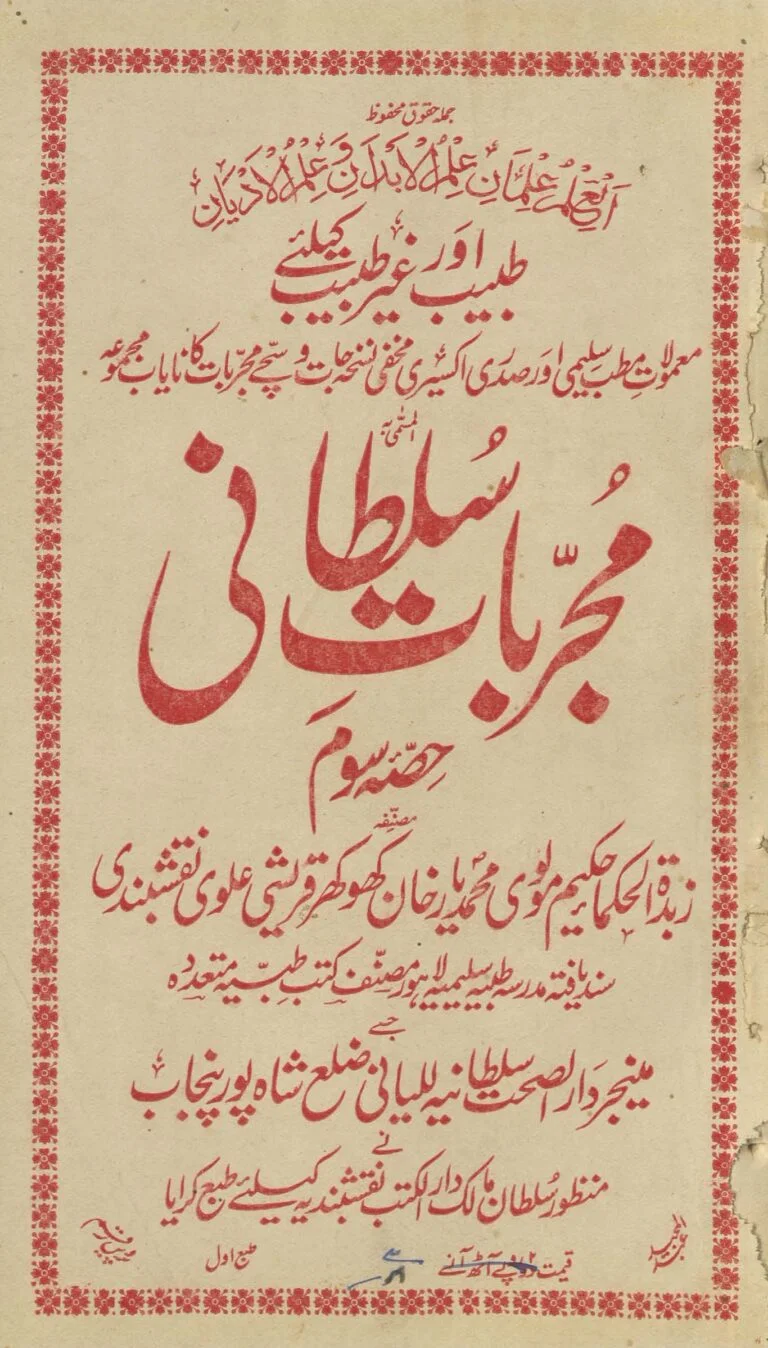 جملہ حقوق محفوظ
اَلعِلْمُ عِلْمَانِ عِلْمُ الْاَبْدَانِ وَ عِلْمُ الْاَدْیَانِ
طبیب اور غیر طبیب کیلئے
معمولات مطب سلیمی اور صدری اکسیری مخفی نسخہ جات و سچے مجربات کا نایاب مجموعہ
المسمّٰی بہ
مُجرّبات سُلطانی
حِصّہ سوم
مصنّفہ
زبدۃ الحکما حکیم مولوی محمد یار خان کھوکھر قریشی علوی نقشبندی
سند یافتہ مدرسہ طبیہ سلیمیہ لاہور مصنّف کتب طبیّہ متعددہ
جسے
مینجر دَار الصحت سلطانیہ للیانی ضلع شاہ پور پنجاب
نے
منظور سُلطان مالک دار الکتب نقشبندیہ کیلئے طبع کرایا
قیمت دو روپے آٹھ آنے
طبع اول